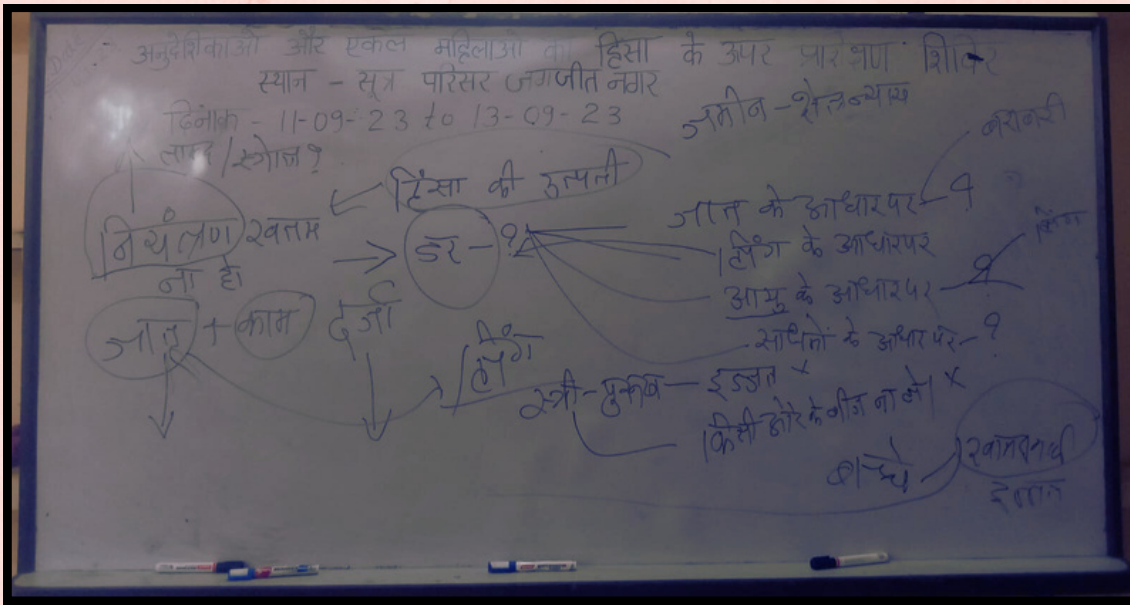 अनुदेशिकाओं और एकल महिलाओं का हिंसा के ऊपर प्रशिक्षण शिविर
स्थान - सूत्र परिसर जगजीत नगर
दिनांक - 11-09-23 to 13-09-23
जमीन -
बराबरी
हिंसा की उत्पती
नियंत्रण खतम
ना हो
डर - ?
जात के आधार पर - ?
लिंग के आधार पर
आयु के आधार पर - ?
लिंग
साधनों के आधार पर - ?
जात + काम दर्जा
लिंग
स्त्री - पुरूष - इज्जत x
किसी और के बीज ना ले। x
बच्चे